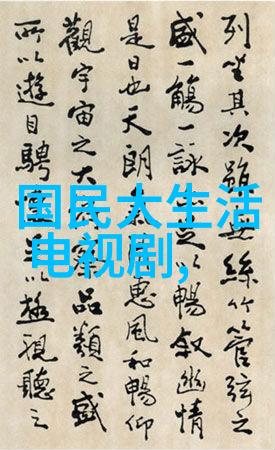 国民大生活
电视剧,
列坐其次雖無絲竹管弦之
盛一觴一詠足以暢敘幽情
是日也天朗惠風和暢仰
觀宇宙之大察品類之盛
所以遊目騁以極視聽之